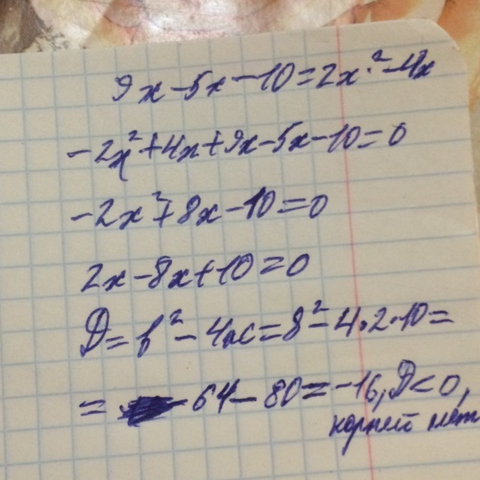 9x-5x-10=2x²-4x
-2x²+4x+9x-5x-10=0
-2x²+8x-10=0
2x-8x+10=0
D=b²-4ac=8²-4·2·10=
= 64-80=-16, D<0,
корней нет